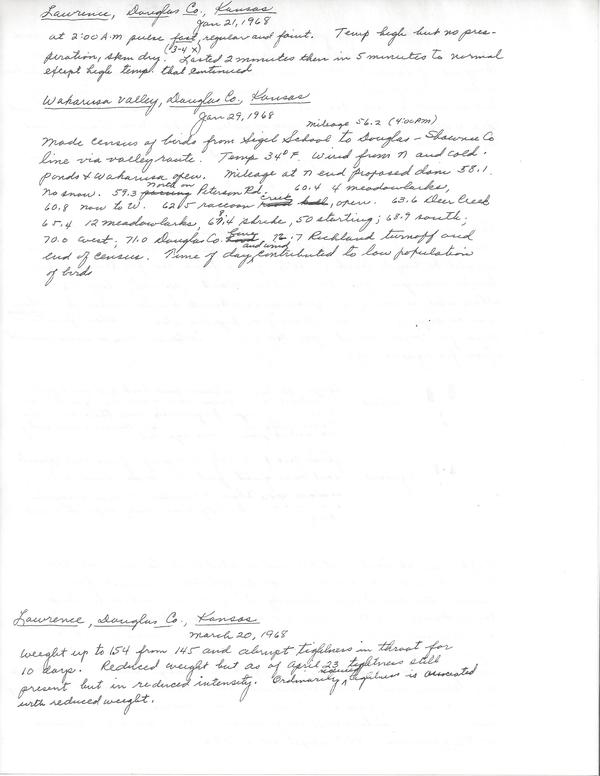 Lawrence, Douglas Co., Kansas
Jan 21, 1968
at 2:00 A.M pulse fast, regular and faint. Temp high but no pres-
(3-4 x)
peration, skin dry. Lasted 2 minutes then in 5 minutes to normal
exept high temp. that continued
Wakarusa Valley, Douglas Co., Kansas
Jan 29, 1968
mileage 56.2 (4:00 PM)
Made census of birds from Sigel School to Douglas - Shawnee Co
line via valley route. Temp 34° F. Wind from N and cold.
Ponds & Wakarusa open. Mileage at N end proposed dam 58.1.
North on
No snow. 59.3 passing Peterson Rd. 60.4 4 meadowlarks,
60.8 now to W. 62.5 raccoon creek, open. 63.6 Deer Creek
65.4 12 meadowlarks, 67.4 shrike, 50 starling; 68.9 south;
70.0 west; 71.0 Douglas Co. 72.7 Richland turnoff and
and wind
end of census. Time of day contributed to low population
of birds
Lawrence, Douglas Co., Kansas
March 20, 1968
Weight up to 154 from 145 and abrupt tightness in throat for
10 days. Reduced weight but as of April 23 tightness still
present but in reduced intensity. Ordinarily tightness is associated
with reduced weight.